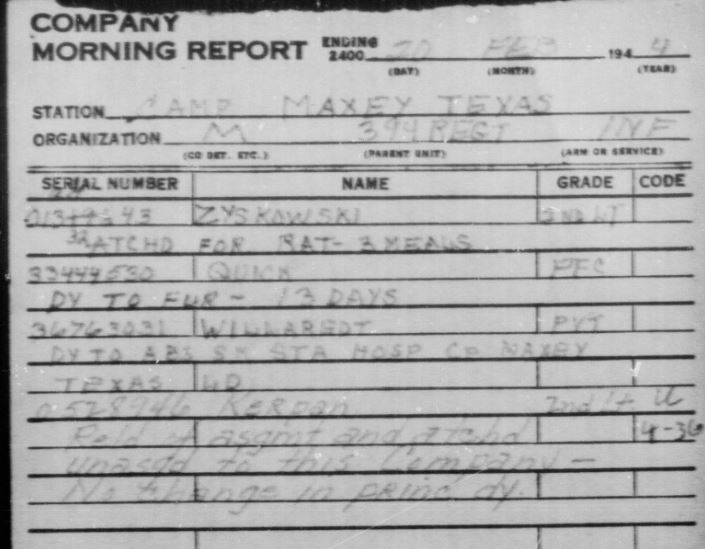 COMPANY
MORNING REPORT ENDING 2400 20 FEB 194 4
(DAY) (MONTH) (YEAR)
STATION CAMP MAXEY TEXAS
ORGANIZATION M 394 REGT INF
(CO DET. ETC.) (PARENT UNIT) (ARM OR SERVICE)
SERIAL NUMBER NAME GRADE CODE
ZYSKOWSKI 2ND LT
ATCHD FOR RAT- 3 MEALS
33444530 QUICK PFC
DY TO FUR - 13 DAYS
36763031 WILLAREDT PVT
DY TO ABS SK STA HOSP CP MAXEY
TEXAS LD
0528946 Kerpan 2nd Lt U
Reld of asgmt and atchd 4-36
unasgd to this Company -
No change in princ dy.